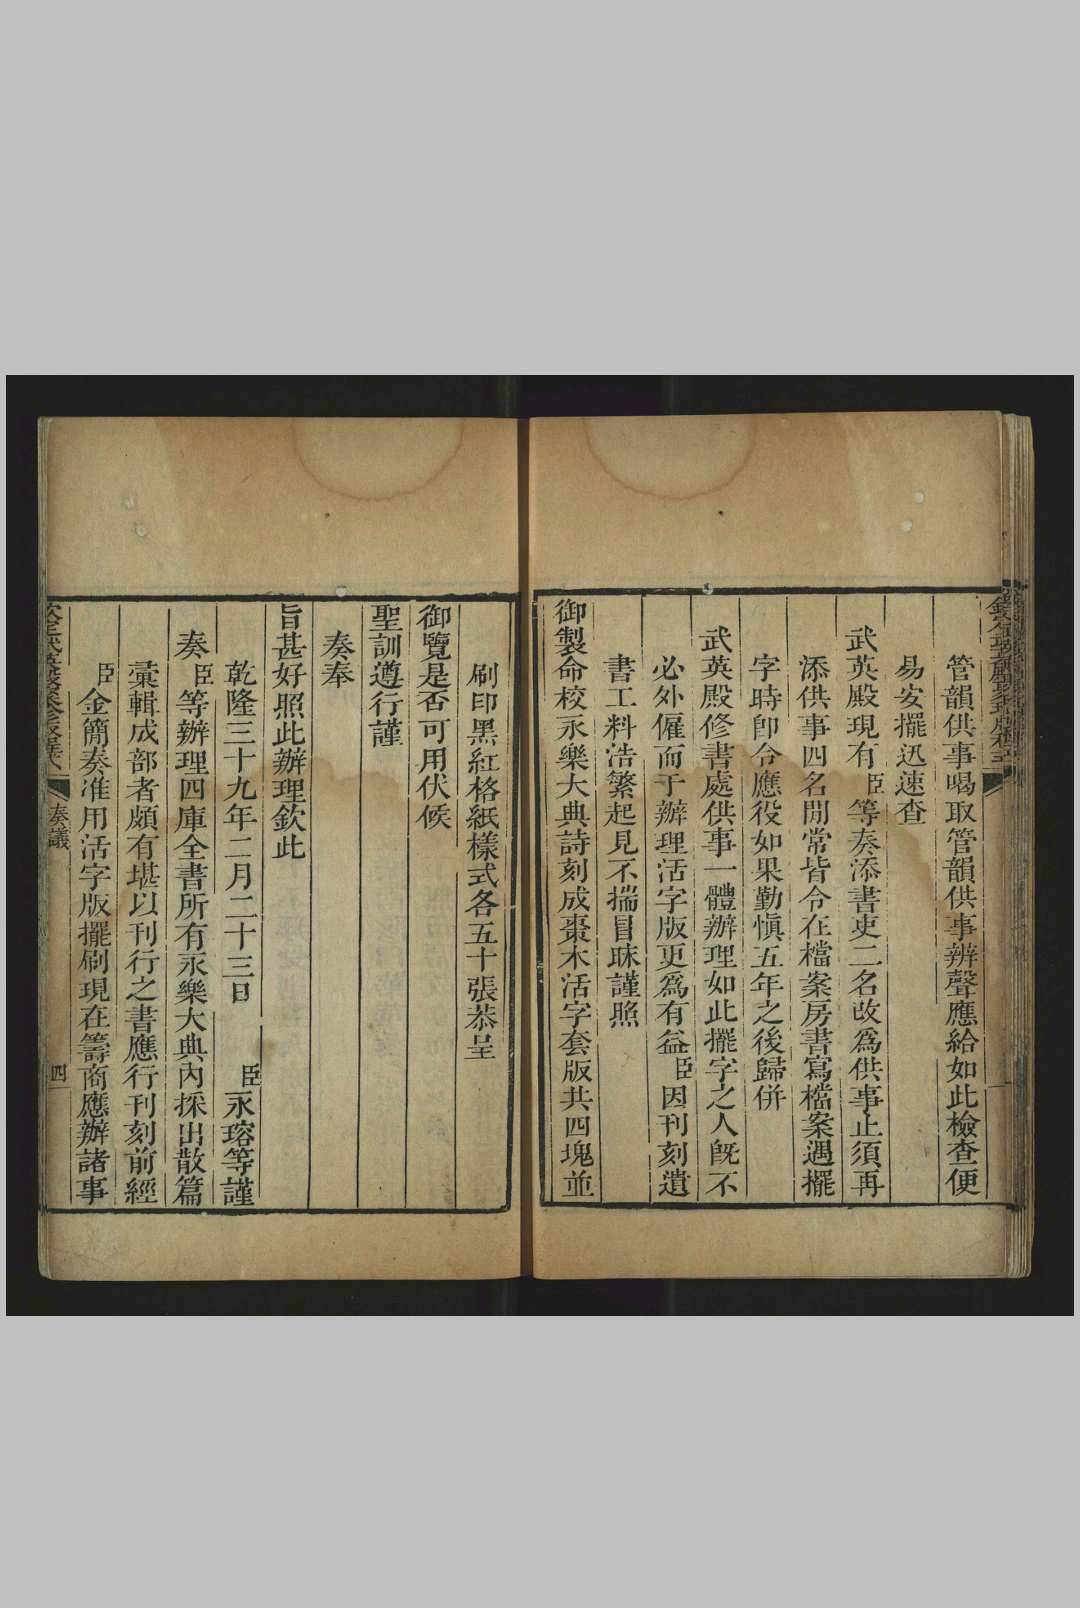 管韻供事喝取管韻供事辨聲應給如此檢查便
易安擺迅速查
武英殿現有臣等奏添書吏二名改為供事止須再
添供事四名閒常皆令在檔案房書寫檔案遇擺
字時卽令應役如果勤慎五年之後歸併
武英殿修書處供事一體辦理如此擺字之人旣不
必外僱而于辦理活字版更為有益臣因刊刻遺
書工料浩繁起見不揣冒昧謹照
御製命校永樂大典詩刻成棗木活字套版共四塊並
刷印黑紅格紙樣式各五十張恭呈
御覽是否可用伏候
聖訓遵行謹
奏奉
旨甚好照此辦理欽此
乾隆三十九年二月二十三日 臣永瑢等謹
奏臣等辦理四庫全書所有永樂大典內採出散篇
彙輯成部者頗有堪以刊行之書應行刊刻前經
臣金簡奏准用活字版擺刷現在籌商應辦諸事
奏議
四